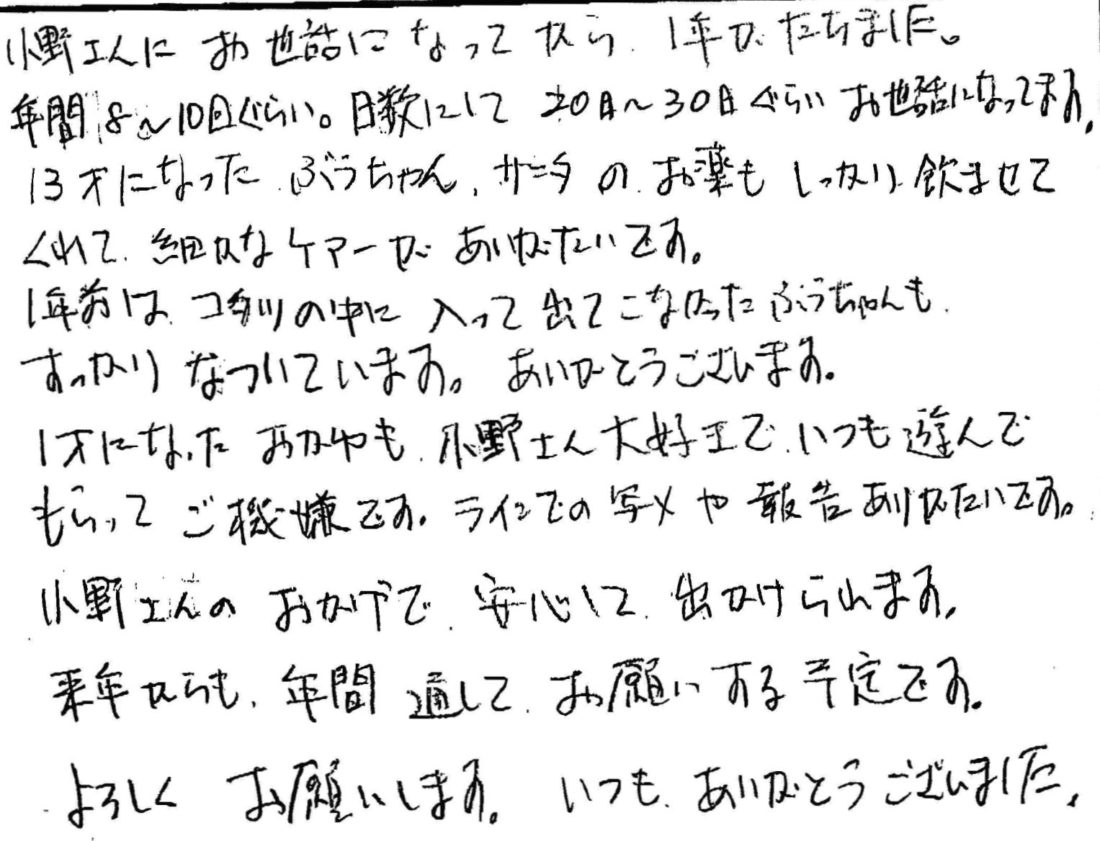 小野さんに お世話になってから、1年が たちました。
年間 8〜10回ぐらい。日数にして 20日〜30日ぐらい お世話になってます。
13才になった ぶうちゃん、サンタ の お薬も しっかり 飲ませて
くれて、細かな ケアーが ありがたいです。
1年前は コタツの中に 入って 出てこなかった ぶうちゃんも
すっかり なついています。ありがとうございます。
1才になった おかゆも 小野さん大好きで、いつも 遊んで
もらって ご機嫌です。ラインでの 写メ や 報告ありがたいです。
小野さんの おかげで 安心して 出かけられます。
来年からも、年間 通して お願い する 予定です。
よろしく お願いします。いつも ありがとう ございました。